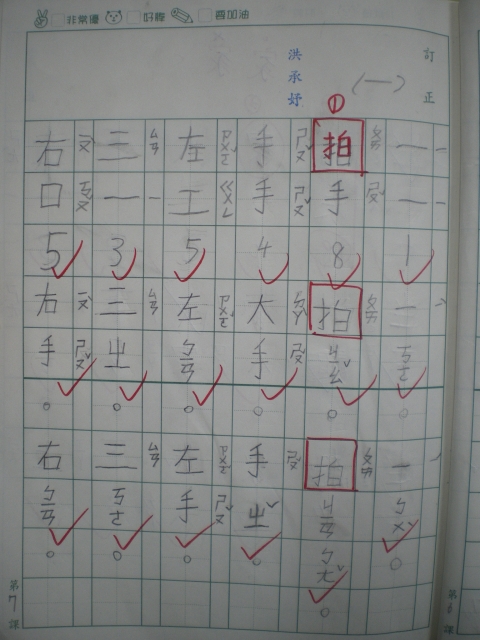 非常優 好棒 要加油
訂正
(一)
洪承妤
①
一 一 1 一 。 一 。
拍 ㄆㄞ 手 ㄕㄡˇ 8 拍 ㄆㄞ 。 拍 ㄆㄞ 。
手 ㄕㄡˇ 手 ㄕㄡˇ 4 大 ㄉㄚˋ 手 ㄕㄡˇ 。 手 ㄕㄡˇ ㄓˇ 。
左 ㄗㄨㄛˇ 工 ㄍㄨㄥ 5 左 ㄗㄨㄛˇ ㄅㄢ 。 左 ㄗㄨㄛˇ 手 ㄕㄡˇ 。
三 ㄙㄢ 一 3 三 ㄙㄢ ㄓ 。 三 ㄙㄢ ㄎㄜ 。
右 ㄧㄡˋ 口 ㄎㄡˇ 5 右 ㄧㄡˋ 手 ㄕㄡˇ 。 右 ㄅㄢ 。
第7課
第 課